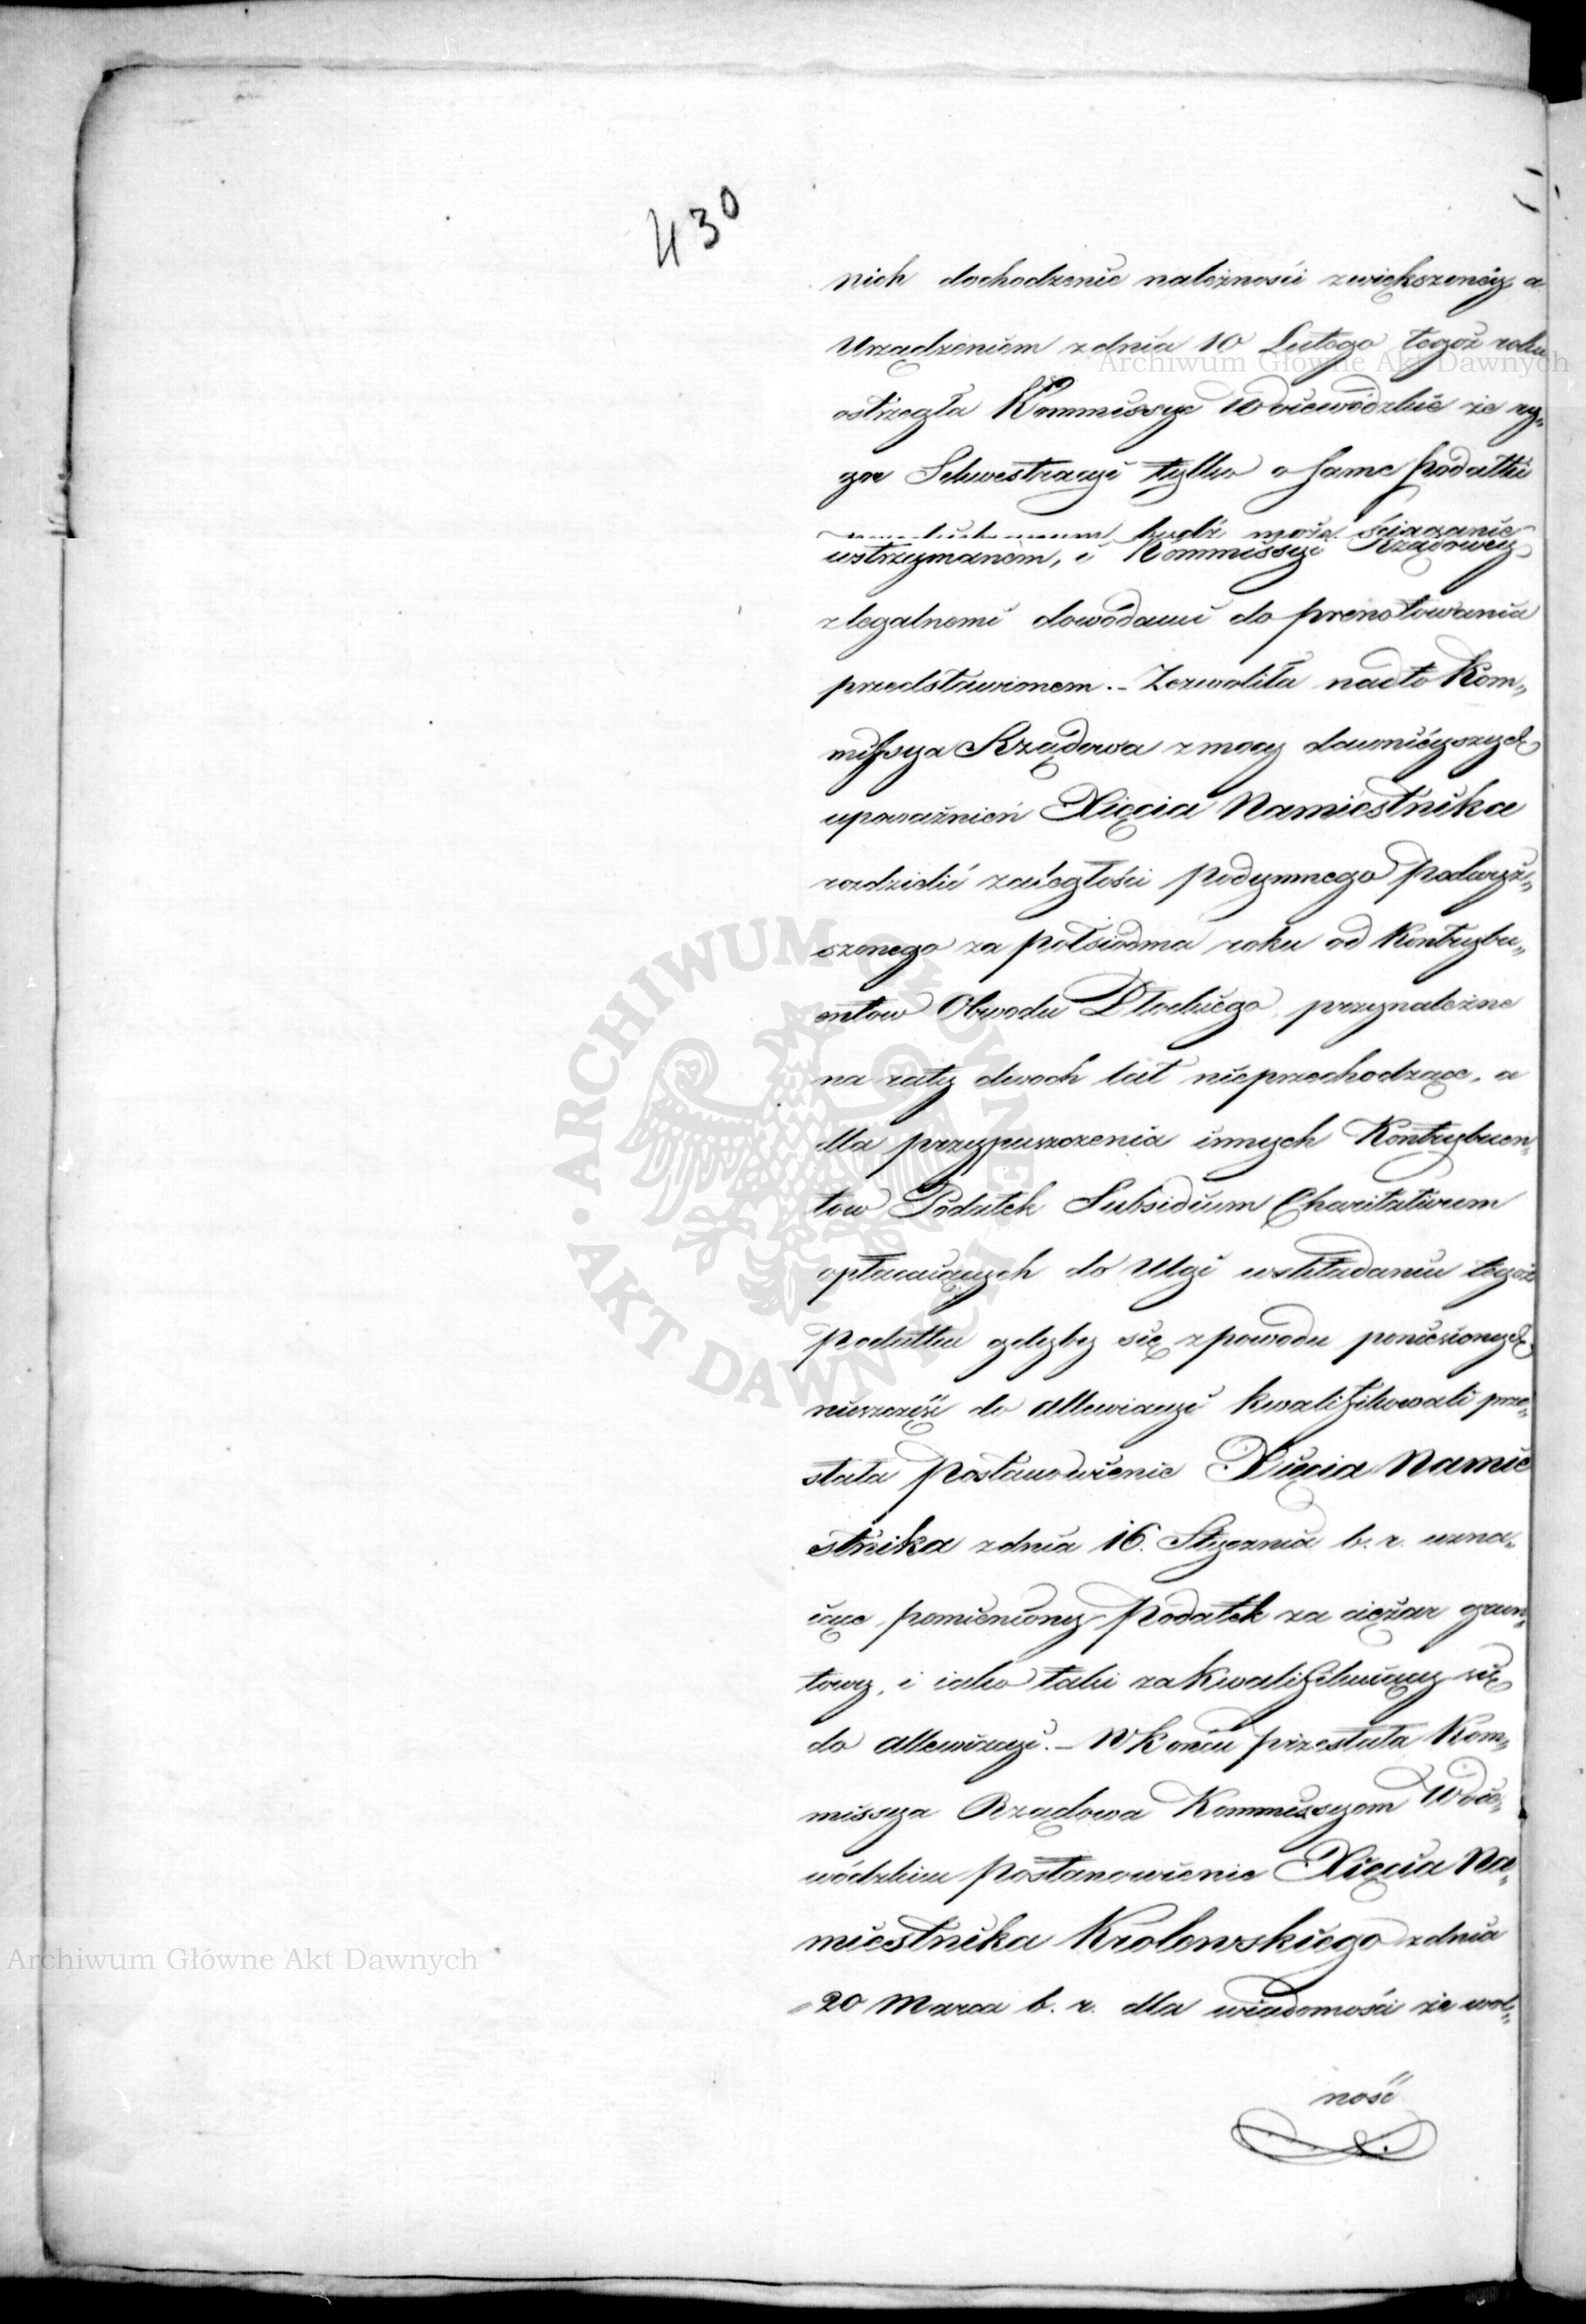 430
nich dochodzenie należności zwiększonéy, a
Urządzeniem z dnia 10 Lutego tegoż roku
ostrzegła Kommissye Woiewódzkie że ry„
gor Sekwestracyi tylko o same podatki
bydź może ściąganie
wstrzymaném, i Kommissyi Rządowey
z legalnemi dowodami do prenotowania
przedstawionem. – Zezwoliła nadto Kom„
missya Rządowa z mocy dawniéyszych
upoważnień Xięcia Namiestnika
rozdzielić zaległości podymnego podwyż„
szonego za pół siódma roku od Kontrybu„
entow Obwodu Płockiego przynależne
na raty dwoch lat nieprzechodzące, a
dla przypuszczenia innych Kontrybuen„
tow Podatek Subsidium Charitativum
opłacaiących do Ulgi w składaniu tegoż
Podatku gdyby się z powodu poniesionych
nieszczęść do allewiacyi kwalifikowali prze„
słała Postanowienie Xięcia Namie
stnika z dnia 16. Stycznia b. r. uzna„
iące pomieniony Podatek za ciężar grun„
towy, i iako taki za kwalifikuiący się
do allewiacyi. – W końcu przesłała Kom„
missya Rządowa Kommissyom Woie„
wódzkim Postanowienie Xięcia Na„
miestnika Krolewskiego z dnia
20 Marca b. r. dla wiadomości że wol„
ność
Archiwum Główne Akt Dawnych
Archiwum Główne Akt Dawnych
ARCHIWUM GŁÓWNE AKT DAWNYCH